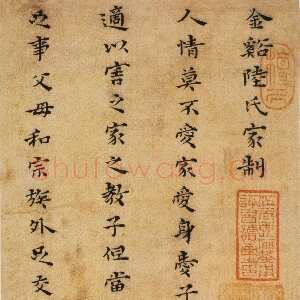 金谿陸氏家制
人情莫不愛家愛身愛子
適以害之家之教子但當
足事父母和宗族外足交